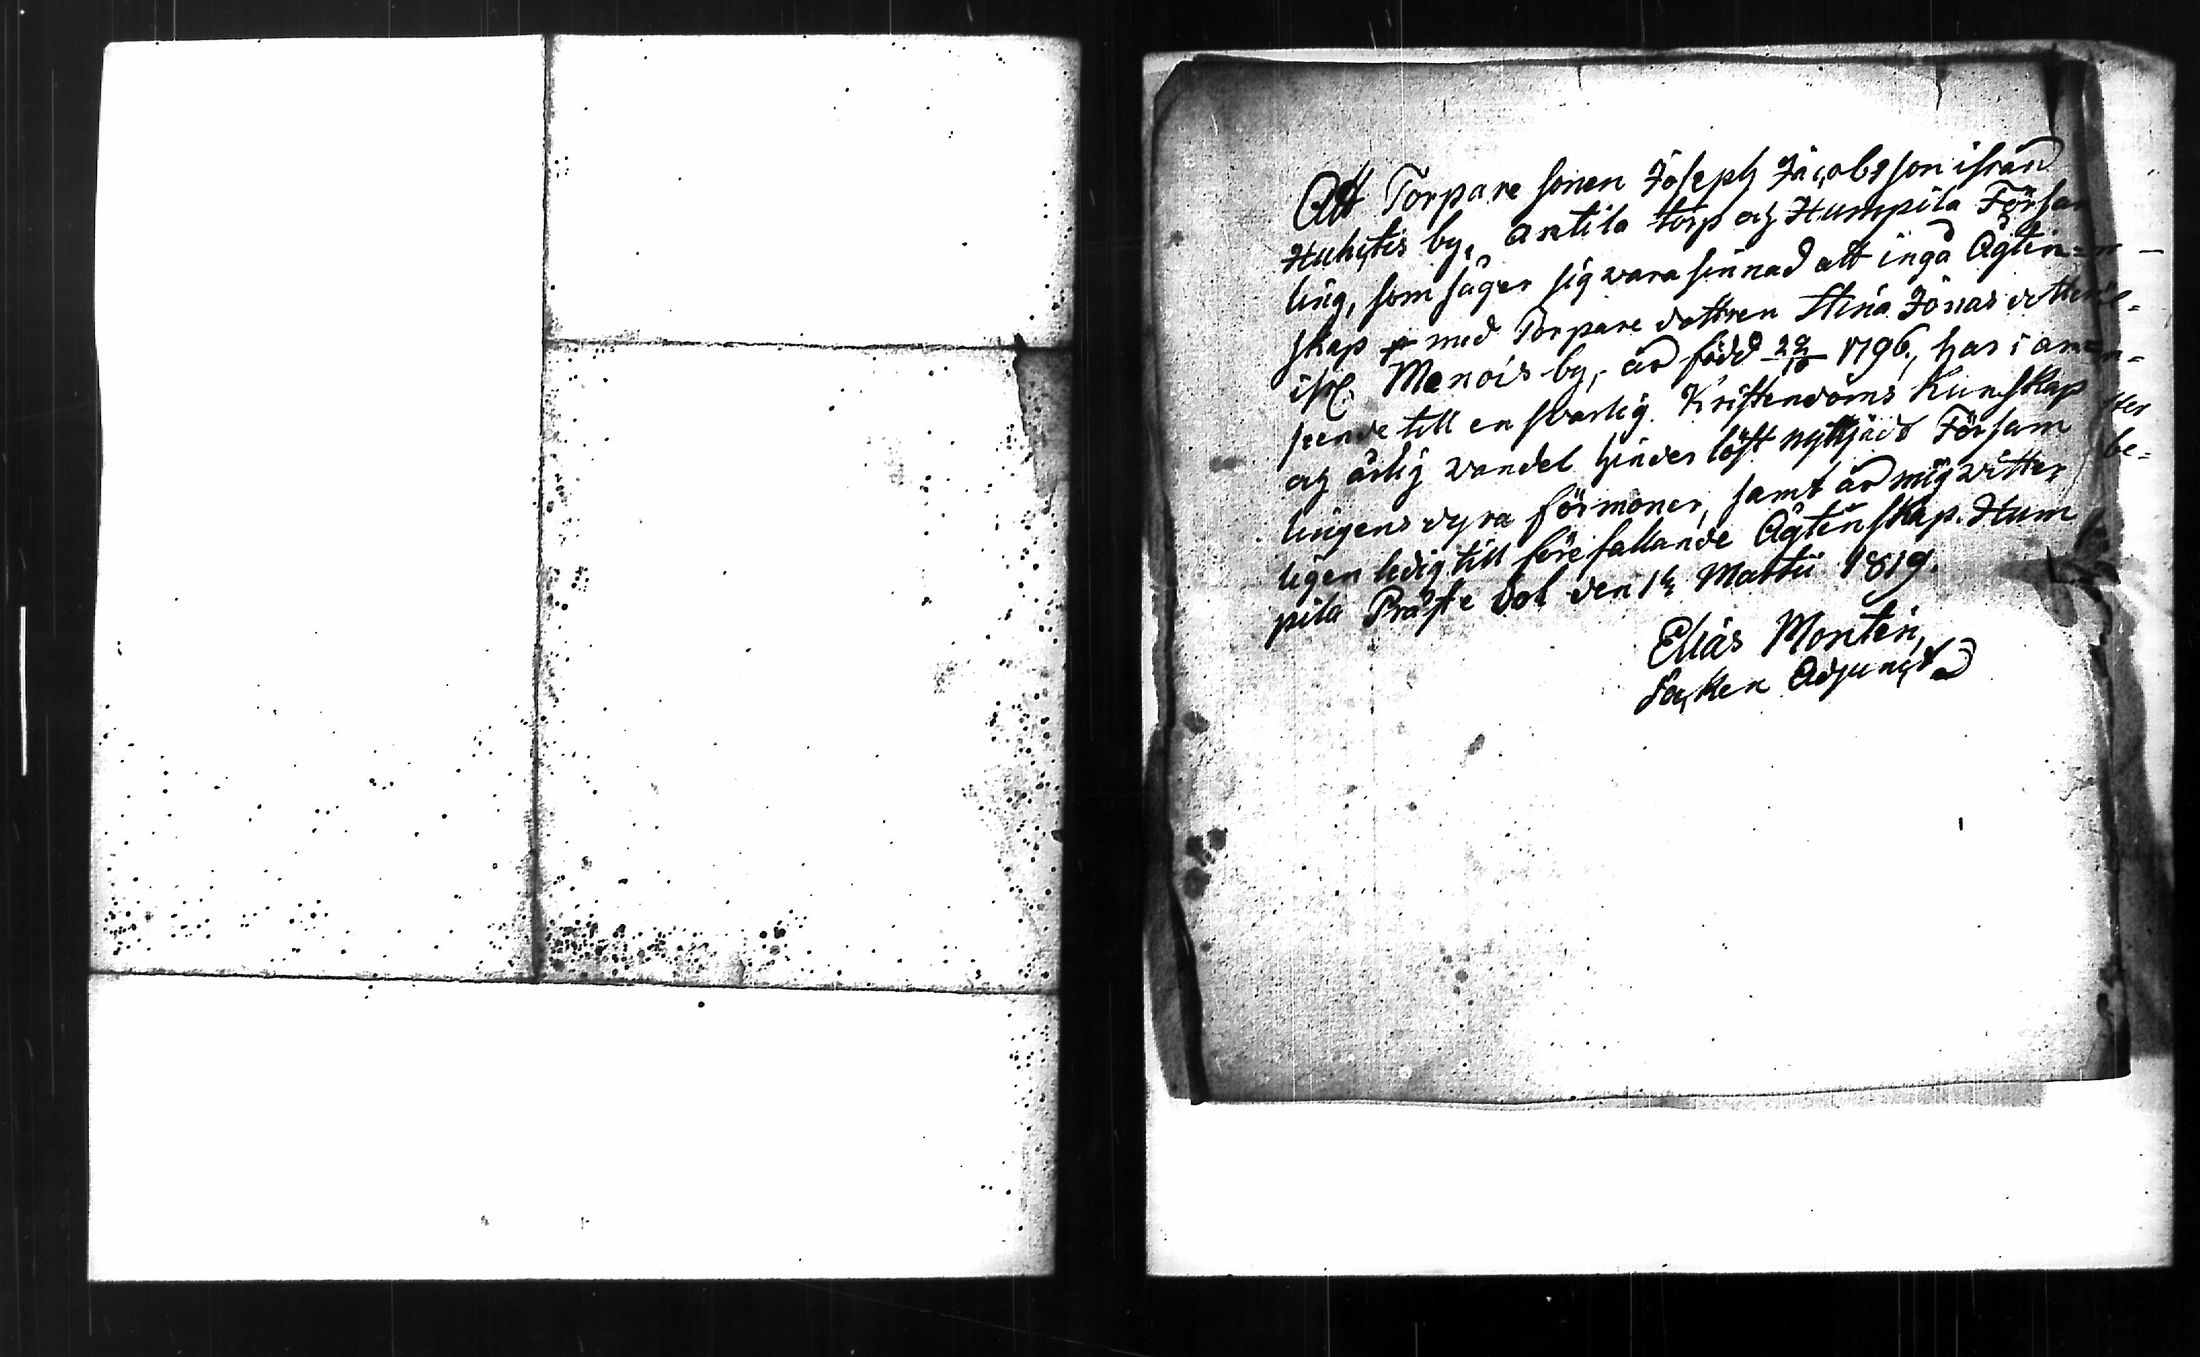 Att Torpare sonen Joseph Jacobsson ifrån
Huhtis by, Antila torp och Humpila Försam
ling, som säger sig wara sinnad att ingå Ägten=
skap med Torpare dottren Stina Jonas dotter
ifr. Menois by, är född 1796, har i an=
seende till en swarlig Kristendoms Kunskap
och ärlig wandel hinderlöst nyttjadt Försam
lingens dyra förmoner, samt är mig witter,
ligen ledig till förefallande Ägtenskap. Hum
pila Präste Bol den Martii 1819.
Elias Monten,
Socken Adjunct